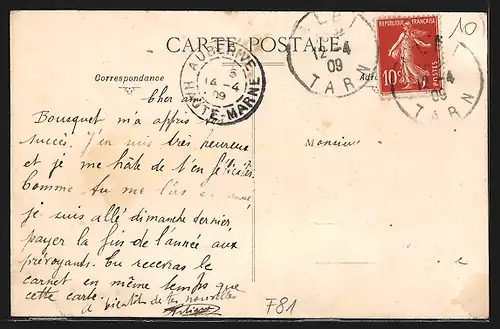 CARTE POSTALE
Correspondance
AUBERIVE
5
14 -4
09
HAUTE-MARNE
12 -4
09
TARN
REPUBLIQUE FRANÇAISE
10c
POSTES
-4
09
TARN
10
Cher ami
Bouquet m'a appris
succès. J'en suis très heureux
et je me hâte de t'en féliciter.
Comme tu me l'as
je suis allé dimanche dernier,
payer la fin de l'année aux
prévoyants. Tu recevras le
carnet en même temps que
cette carte.
à bientôt de tes nouvelles
Monsieur
F81